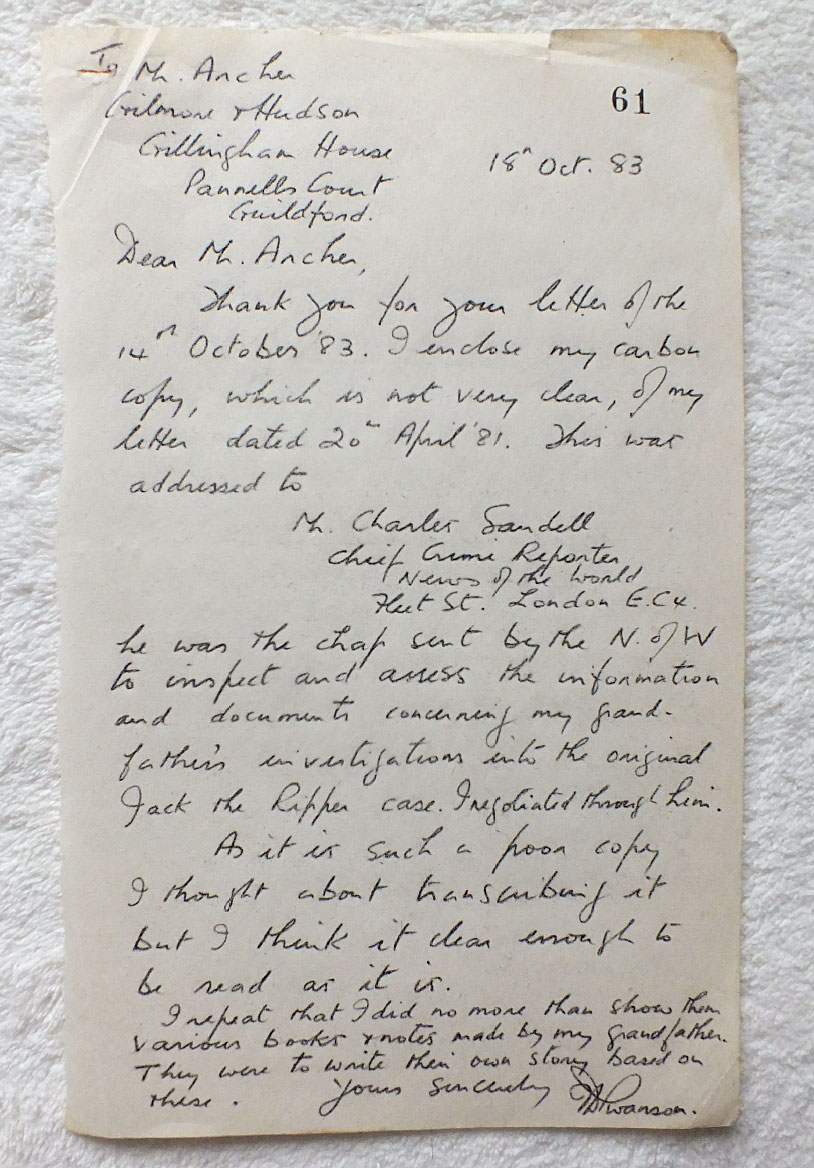 To Mr. Archer
61
Gilmore & Hudson
Gillingham House
18th Oct. 83
Pannells Court
Guildford.
Dear Mr. Archer,
Thank you for your letter of the
14th October '83. I enclose my carbon
copy, which is not very clear, of my
letter dated 20th April '81. This was
addressed to
Mr. Charles Sandell
Chief Crime Reporter
News of the World
Fleet St. London E.C4.
he was the chap sent by the N. of W
to inspect and assess the information
and documents concerning my grand-
father's investigations into the original
Jack the Ripper case. I negotiated through him.
As it is such a poor copy
I thought about transcribing it
but I think it clear enough to
be read as it is.
I repeat that I did no more than show them
various books & notes made by my grandfather.
They were to write their own story based on
these. Yours Sincerely Swanson.